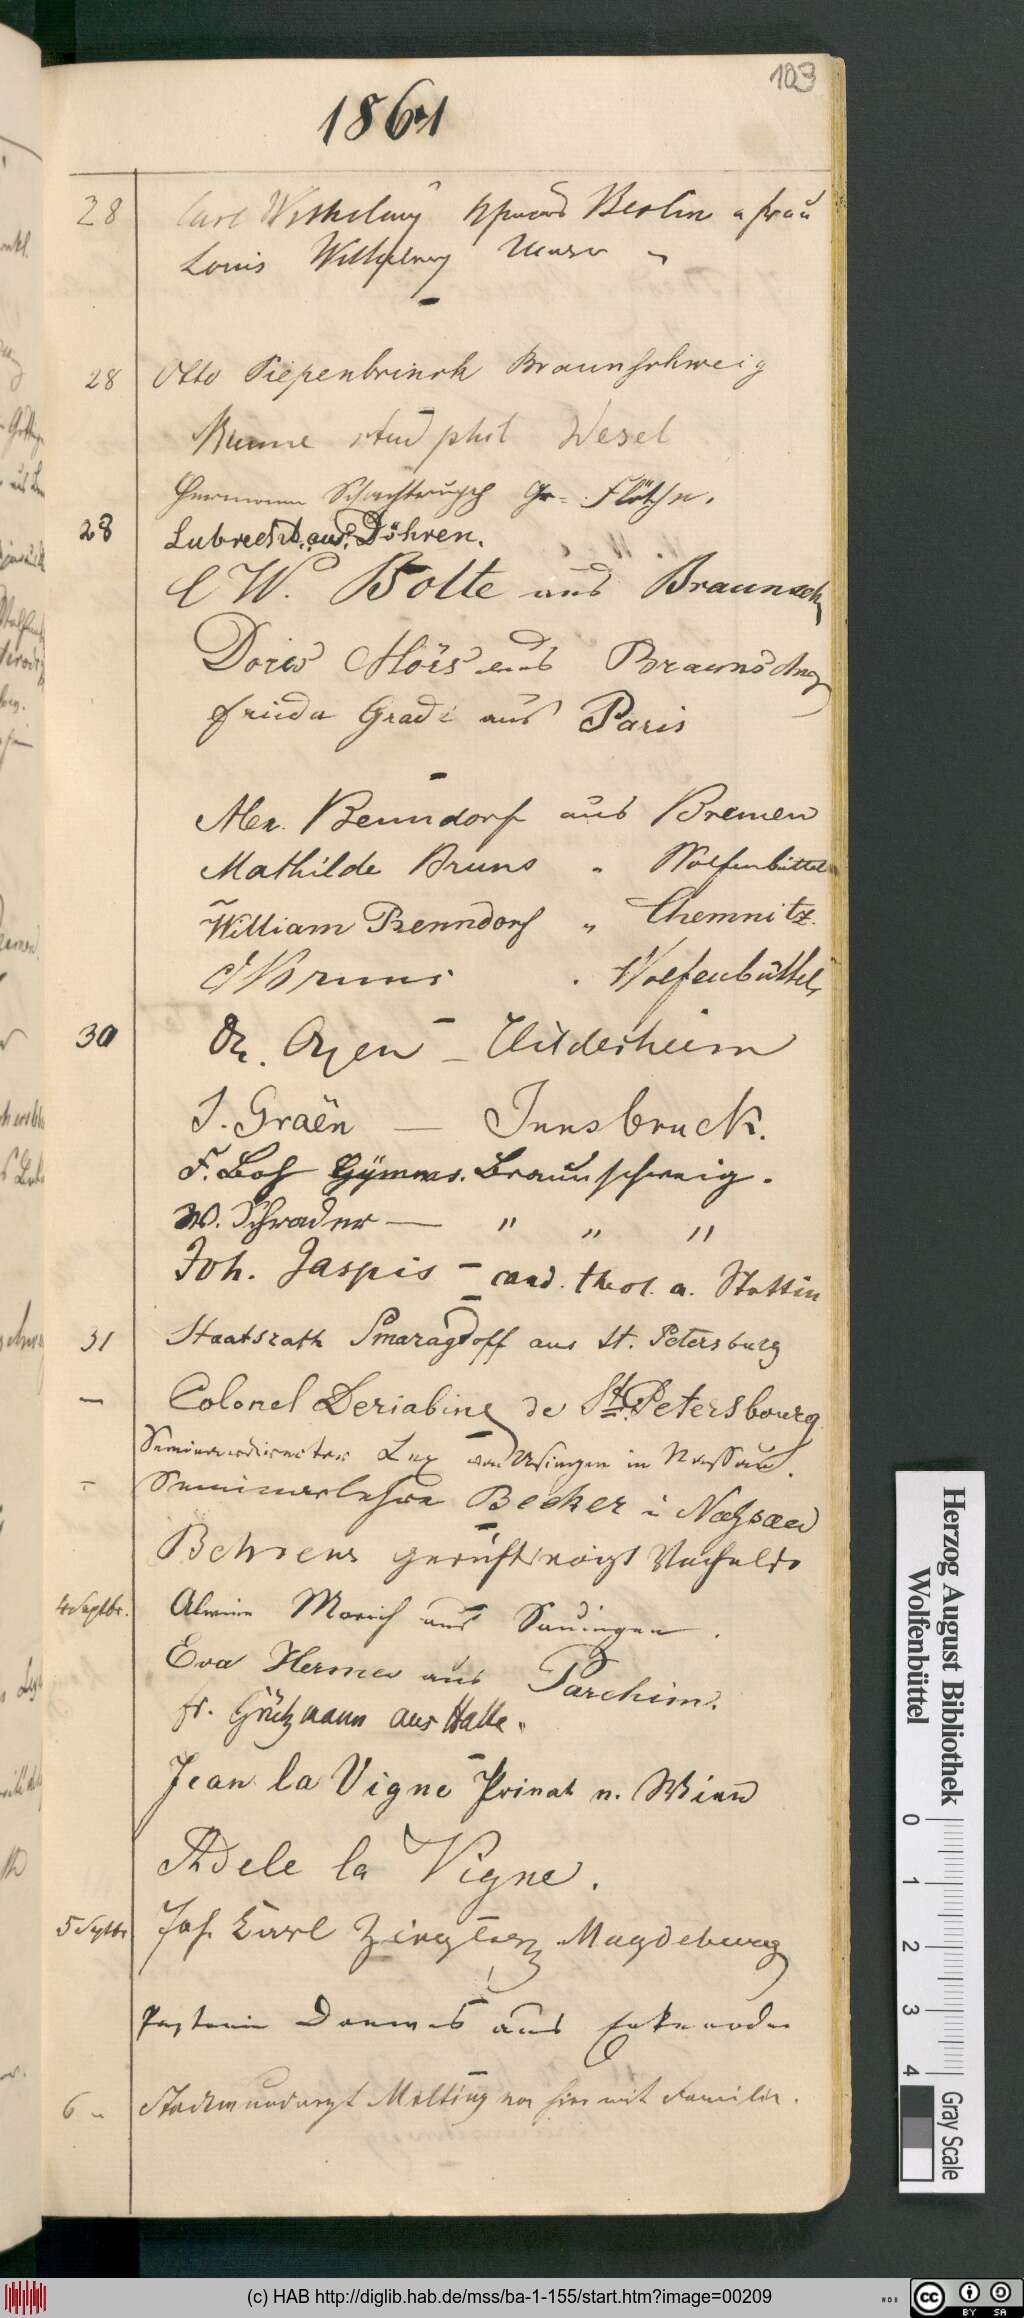 103
1861
28 Carl Wilhelmy Berlin u Frau
Louis Wilhelmy "
28 Otto Piepenbrinck Braunschweig
Kumme stud phil Wesel
Hermann Gr. Flöthe.
28 Lubrecht. aus. Döhren.
C W. Bolte aus Braunsch
Doris aus Braunschwg
Frieda Grade aus Paris
Alex. Benndorf aus Bremen
Mathilde Bruns " Wolfenbüttel
William Benndorf " Chemnitz.
Bruns " Wolfenbüttel
30 Dr. – Hildesheim
J. Graën — Innsbruck.
F. Bos Gÿmnas. Braunschweig.
W. Schrader — " " "
Joh. Jaspis – cand. theol. a. Stettin
31 Staatsrath Smaragdoff aus St. Petersburg
— Colonel Deriabine de St. Petersbourg
Seminardirector Lex von Usingen in Nassau.
– Seminarlehrer Becker i Nassau
Behrens
4 Septbr. Alwine Morich aus Sauingen.
Eva Hermes aus Parchim.
Fr. Grützmann aus Halle.
Jean la Vigne Privat n. Wien
Adele la Vigne.
5 Septbr Joh. Karl Ziegler Magdeburg
Pastorin aus
6 " Stadtwundarzt Mitting von hier mit Familie.
Herzog August Bibliothek
Wolfenbüttel
0 1 2 3 4 Gray Scale
(c) HAB http://diglib.hab.de/mss/ba-1-155/start.htm?image=00209
WDB
cc BY SA